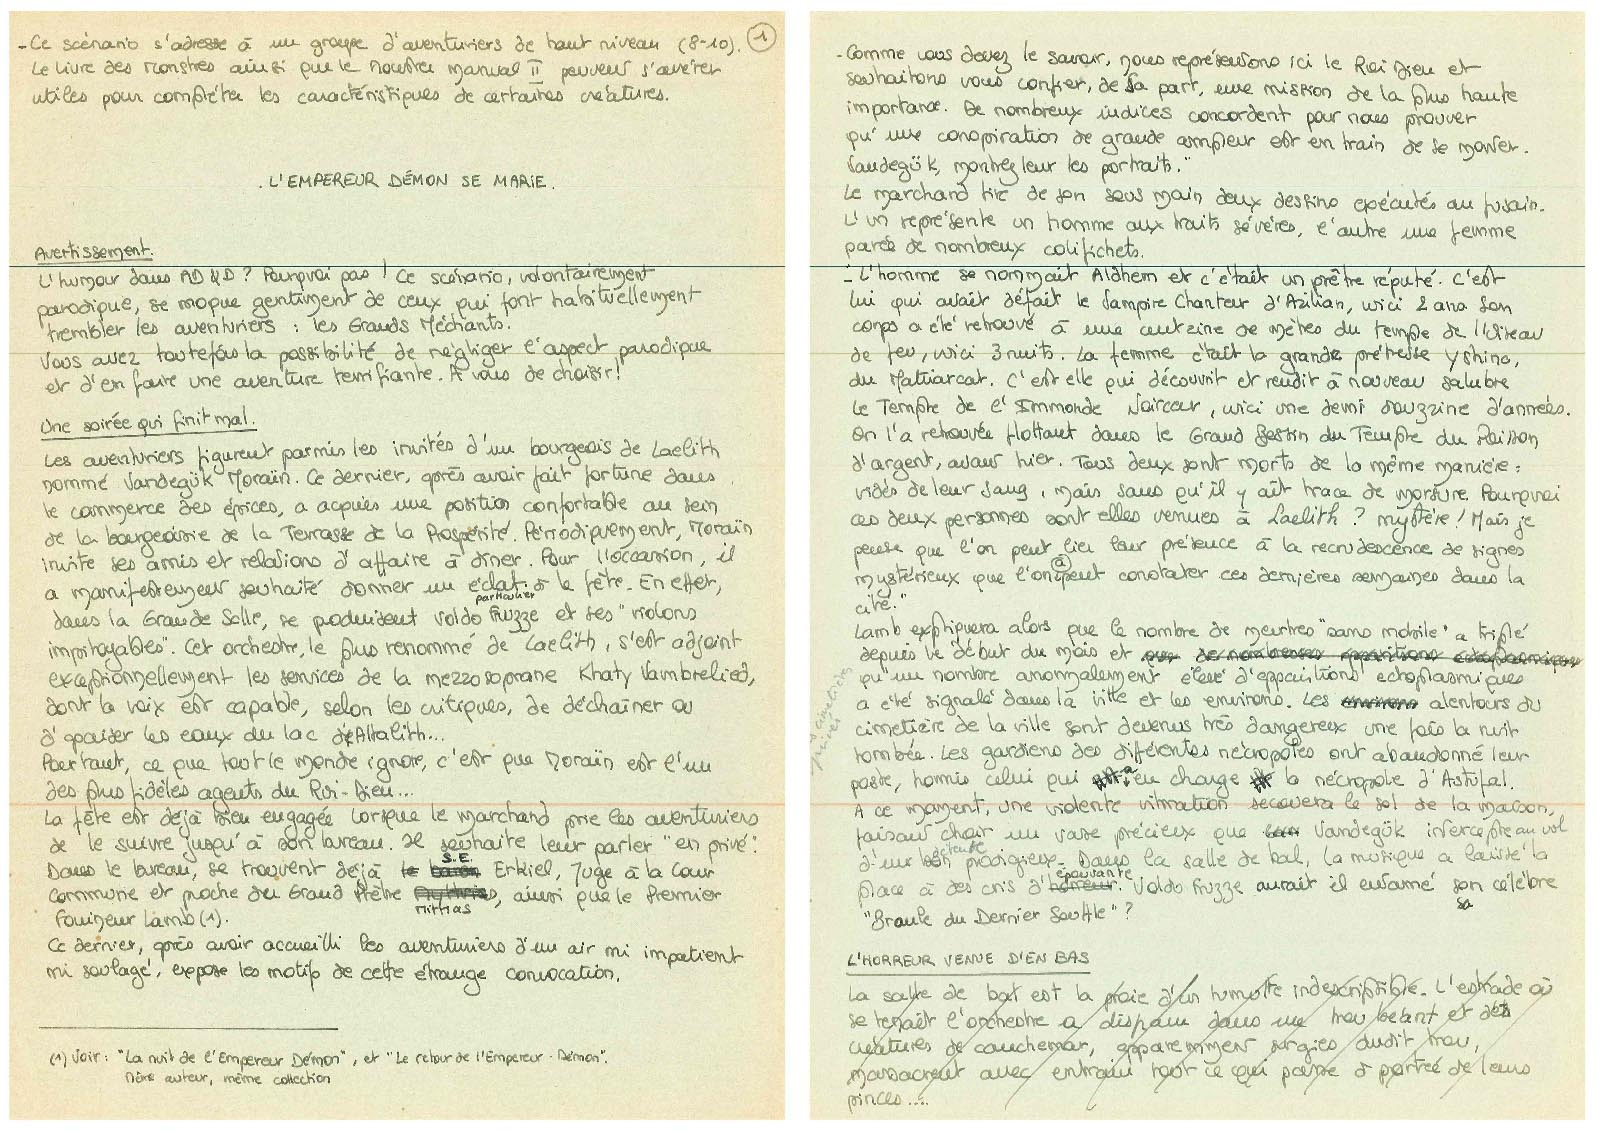 - Ce scénario s'adresse à un groupe d'aventuriers de haut niveau (8-10). 1
Le livre des Monstres ainsi que le Monster Manual II peuvent s'avérer
utiles pour compléter les caractéristiques de certaines créatures.
. L'EMPEREUR DÉMON SE MARIE .
Avertissement.
L'humour dans AD&D ? Pourquoi pas ! Ce scénario, volontairement
parodique, se moque gentiment de ceux qui font habituellement
trembler les aventuriers : les Grands Méchants.
Vous avez toutefois la possibilité de négliger l'aspect parodique
et d'en faire une aventure terrifiante. A vous de choisir !
Une soirée qui finit mal.
Les aventuriers figurent parmis les invités d'un bourgeois de Laelith
nommé Vandegük Moraïn. Ce dernier, après avoir fait fortune dans
le commerce des épices, a acquies une position confortable au sein
de la bourgeoisie de la Terrasse de la Prospérité. Périodiquement, Moraïn
invite ses amis et relations d'affaire à dîner. Pour l'occasion, il
a manifestement souhaité donner un éclat particulier à la fête. En effet,
dans la Grande Salle, se produisent Voldo Fruzze et ses "violons
impitoyables". Cet orchestre, le plus renommé de Laelith, s'est adjoint
exceptionnellement les services de la mezzo soprane Khaty Vambrelied,
dont la voix est capable, selon les critiques, de déchaîner ou
d'apaiser les eaux du lac d'Altalith...
Pourtant, ce que tout le monde ignore, c'est que Moraïn est l'un
des plus fidèles agents du Roi-Dieu...
La fête est déjà bien engagée lorsque le marchand prie les aventuriers
de le suivre jusqu'à son bureau. Il souhaite leur parler "en privé".
Dans le bureau, se trouvent déjà le baron S.E. Erkiel, Juge à la Cour
Commune et proche du Grand Prêtre Mithias, ainsi que le Premier
Fouineur Lamb (1).
Ce dernier, après avoir accueilli les aventuriers d'un air mi impatient
mi soulagé, expose les motifs de cette étrange convocation.
(1) Voir : "La nuit de l'Empereur Démon", et "Le retour de l'Empereur-Démon".
Même auteur, même collection
- Comme vous devez le savoir, nous représentons ici le Roi Dieu et
souhaitons vous confier, de sa part, une mission de la plus haute
importance. De nombreux indices concordent pour nous prouver
qu'une conspiration de grande ampleur est en train de se monter.
Vandegük, montrez leur les portraits."
Le marchand tire de son sous main deux dessins exécutés au fusain.
L'un représente un homme aux traits sévères, l'autre une femme
parée de nombreux colifichets.
- L'homme se nommait Aldhem et c'était un prêtre réputé. C'est
lui qui avait défait le Vampire Chanteur d'Azilian, voici 2 ans. Son
corps a été retrouvé à une centaine de mètres du temple de l'Oiseau
de feu, voici 3 nuits. La femme était la grande prêtresse Yshina,
du Matriarcat. C'est elle qui découvrit et rendit à nouveau salubre
le Temple de l'Immonde Noirceur, voici une demi douzzine d'années.
On l'a retrouvée flottant dans le Grand Bassin du Temple du Poisson
d'argent, avant hier. Tous deux sont morts de la même manière :
vidés de leur sang, mais sans qu'il y aît trace de morsure. Pourquoi
ces deux personnes sont elles venues à Laelith ? mystère ! Mais je
pense que l'on peut lier leur présence à la recrudescence de signes
mystérieux que l'on a peut constater ces dernières semaines dans la
cité."
Lamb expliquera alors que le nombre de meurtres "sans mobile" a triplé
depuis le début du mois et que de nombreuses apparitions ectoplasmiques
qu'un nombre anormalement élevé d'apparitions ectoplasmiques
a été signalé dans la ville et les environs. Les environs alentours du
cimetière de la ville sont devenus très dangereux une fois la nuit
tombée. Les gardiens des différentes nécropoles ont abandonné leur
poste, hormis celui qui a en charge la nécropole d'Astifal.
A ce moment, une violente vibration secouera le sol de la maison,
faisant choir un vase précieux que Vandegük intercepte au vol
d'une détente prodigieuse. Dans la salle de bal, la musique a laissé la
place à des cris d'horreur épouvante. Voldo Fruzze aurait il entamé son sa célèbre
"Branle du Dernier Souffle" ?
L'HORREUR VENUE D'EN BAS
La salle de bal est la proie d'un tumulte indescriptible. L'estrade où
se tenait l'orchestre a disparu dans un trou béant et des
créatures de cauchemar, apparemment surgies dudit trou,
massacrent avec entrain tout ce qui passe à portée de leurs
pinces....